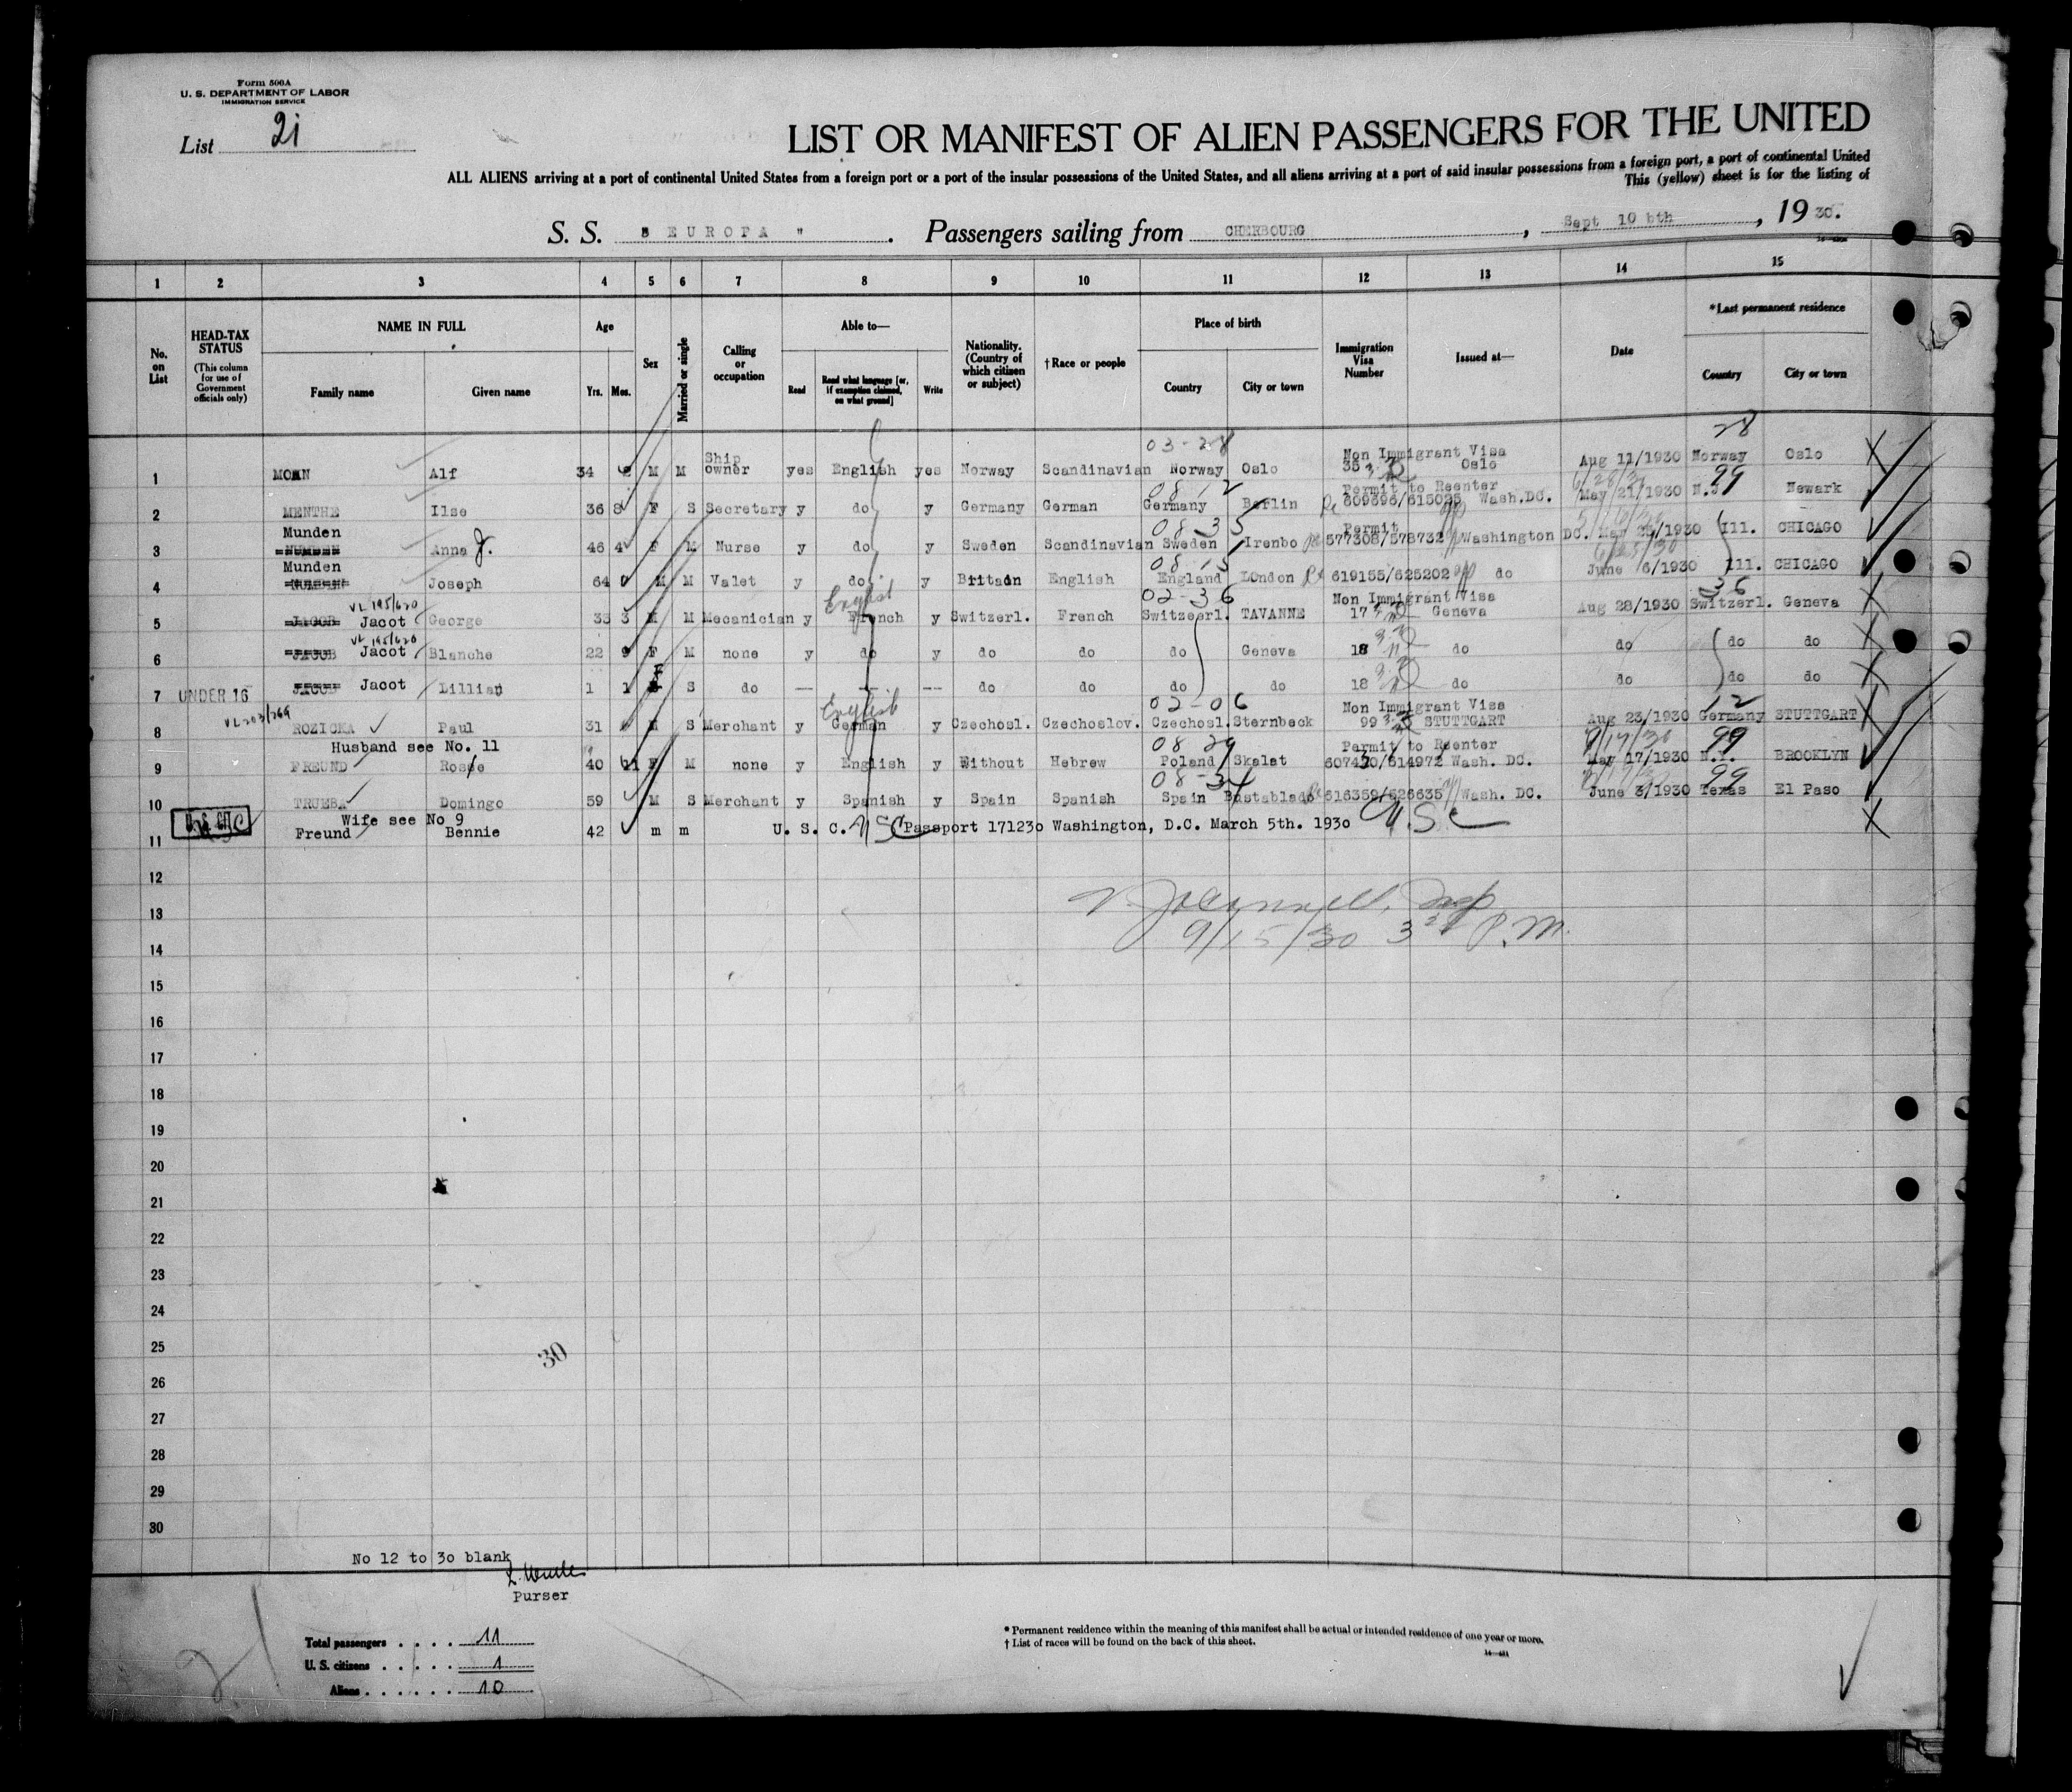 Form 500A
U. S. DEPARTMENT OF LABOR
IMMIGRATION SERVICE
List 2i
LIST OR MANIFEST OF ALIEN PASSENGERS FOR THE UNITED
ALL ALIENS arriving at a port of continental United States from a foreign port or a port of the insular possessions of the United States, and all aliens arriving at a port of said insular possessions from a foreign port, a port of continental United
This (yellow) sheet is for the listing of
S. S. " EUROPA " . Passengers sailing from CHERBOURG , Sept 10 bth , 19 30.
1 2 3 4 5 6 7 8 9 10 11 12 13 14 15
No. on List
HEAD-TAX STATUS
(This column for use of Government officials only)
NAME IN FULL
Family name Given name
Age
Yrs. Mos.
Sex
Married or single
Calling or occupation
Able to—
Read
Read what language [or, if exemption claimed, on what ground]
Write
Nationality. (Country of which citizen or subject)
† Race or people
Place of birth
Country City or town
Immigration Visa Number
Issued at—
Date
* Last permanent residence
Country City or town
03-28 28
Non Immigrant Visa
1 Alf 34 M M Ship owner yes English yes Norway Scandinavian Norway Oslo 35 Oslo Aug 11/1930 Norway Oslo
Permit to Reenter 99
2 MENTHE Ilse 36 8 F S Secretary y do y Germany German Germany Berlin 609696/615025 Wash.DC. May 21/1930 N.J. Newark
Munden 08-35 Permit
3 Anna J. 46 4 F M Nurse y do y Sweden Scandinavian Sweden Irenbo 577308/578732 Washington DC. 1930 Ill. CHICAGO
Munden 08-15 6/25/30
4 Joseph 64 M M Valet y do y Britain English England London 619155/625202 do June 6/1930 Ill. CHICAGO
VL 195/620 English 02-36 Non Immigrant Visa 36
5 Jacot George 33 3 M M Mecanician y French y Switzerl. French Switzeerl. TAVANNE 17 Geneva Aug 28/1930 Switzerl. Geneva
VL 195/620
6 JACOB Jacot Blanche 22 9 F M none y do y do do do Geneva 18 do do do do
7 UNDER 16 JACOB Jacot Lillian 1 1 F S do — — -- do do do do 18 do do do do
VL 203/269 English 02-06 Non Immigrant Visa 12
8 ROZICKA Paul 31 M S Merchant y German y Czechosl. Czechoslov. Czechosl. Sternbeck 99 STUTTGART Aug 23/1930 Germany STUTTGART
Husband see No. 11 08 29 Permit to Reenter 9/17/30 99
9 FREUND Rose 40 11 F M none y English y Without Hebrew Poland Skalat 607430/614972 Wash. DC. May 17/1930 N.Y. BROOKLYN
08-34 99
10 TRUEBA Domingo 59 M S Merchant y Spanish y Spain Spanish Spain Bustablado 616359/626635 Wash. DC. June 3/1930 Texas El Paso
Wife see No 9
11 U. S. CIT. Freund Bennie 42 m m U. S. C. USC Passport 171230 Washington, D.C. March 5th. 1930 U.S.C
12
13
9/15/30 3 P.M.
14
15
16
17
18
19
20
21
22
23
24
25
30
26
27
28
29
30
No 12 to 30 blank
Purser
Total passengers . . . . 11
U. S. citizens . . . . . 1
Aliens . . . . . . 10
21
* Permanent residence within the meaning of this manifest shall be actual or intended residence of one year or more.
† List of races will be found on the back of this sheet.